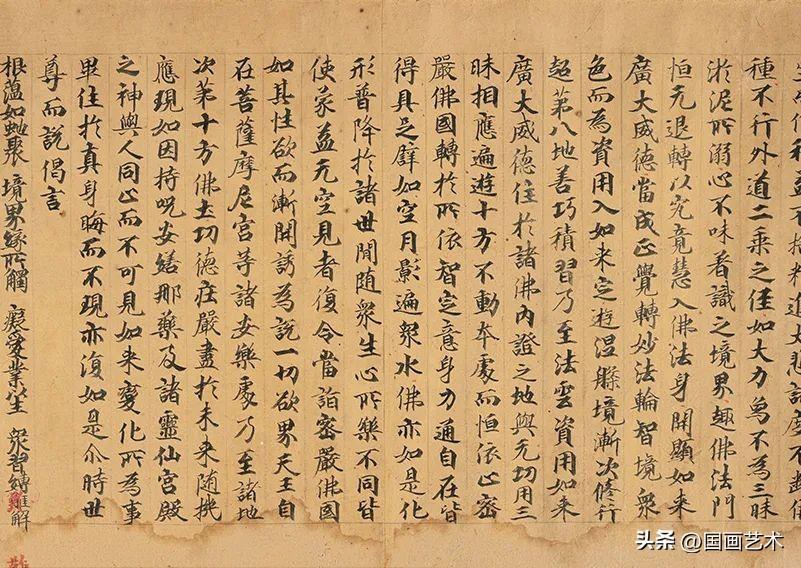 種不行外道二乘之徑如大力象不為三昧
淤泥所溺心不味著識之境界趣佛法門
恒无退轉以究竟慧入佛法身開顯如來
廣大威德當成正覺轉妙法輪智境眾
色而為資用入如來定遊涅槃境漸次修行
超第八地善巧積習乃至法雲資用如來
廣大威德住於諸佛內證之地與无功用三
昧相應遍遊十方不動本處而恒依止密
嚴佛國轉於所依智定意身力通自在皆
得具足譬如空月影遍眾水佛亦如是化
形普降於諸世間隨眾生心所樂不同皆
使蒙益无空見者復令當詣密嚴佛國
如其性欲而漸開誘為說一切欲界天王自
在菩薩摩尼宮等諸安樂處乃至諸地
次第十方佛土功德莊嚴盡於未來隨機
應現如因持呪安繕那藥及諸靈仙宮殿
之神與人同止而不可見如來變化所為事
畢住於真身晦而不現亦復如是尒時世
尊而說偈言
根蘊如虵聚 境界緣所觸 癡愛業生 眾習縛難解
头条 @国画艺术